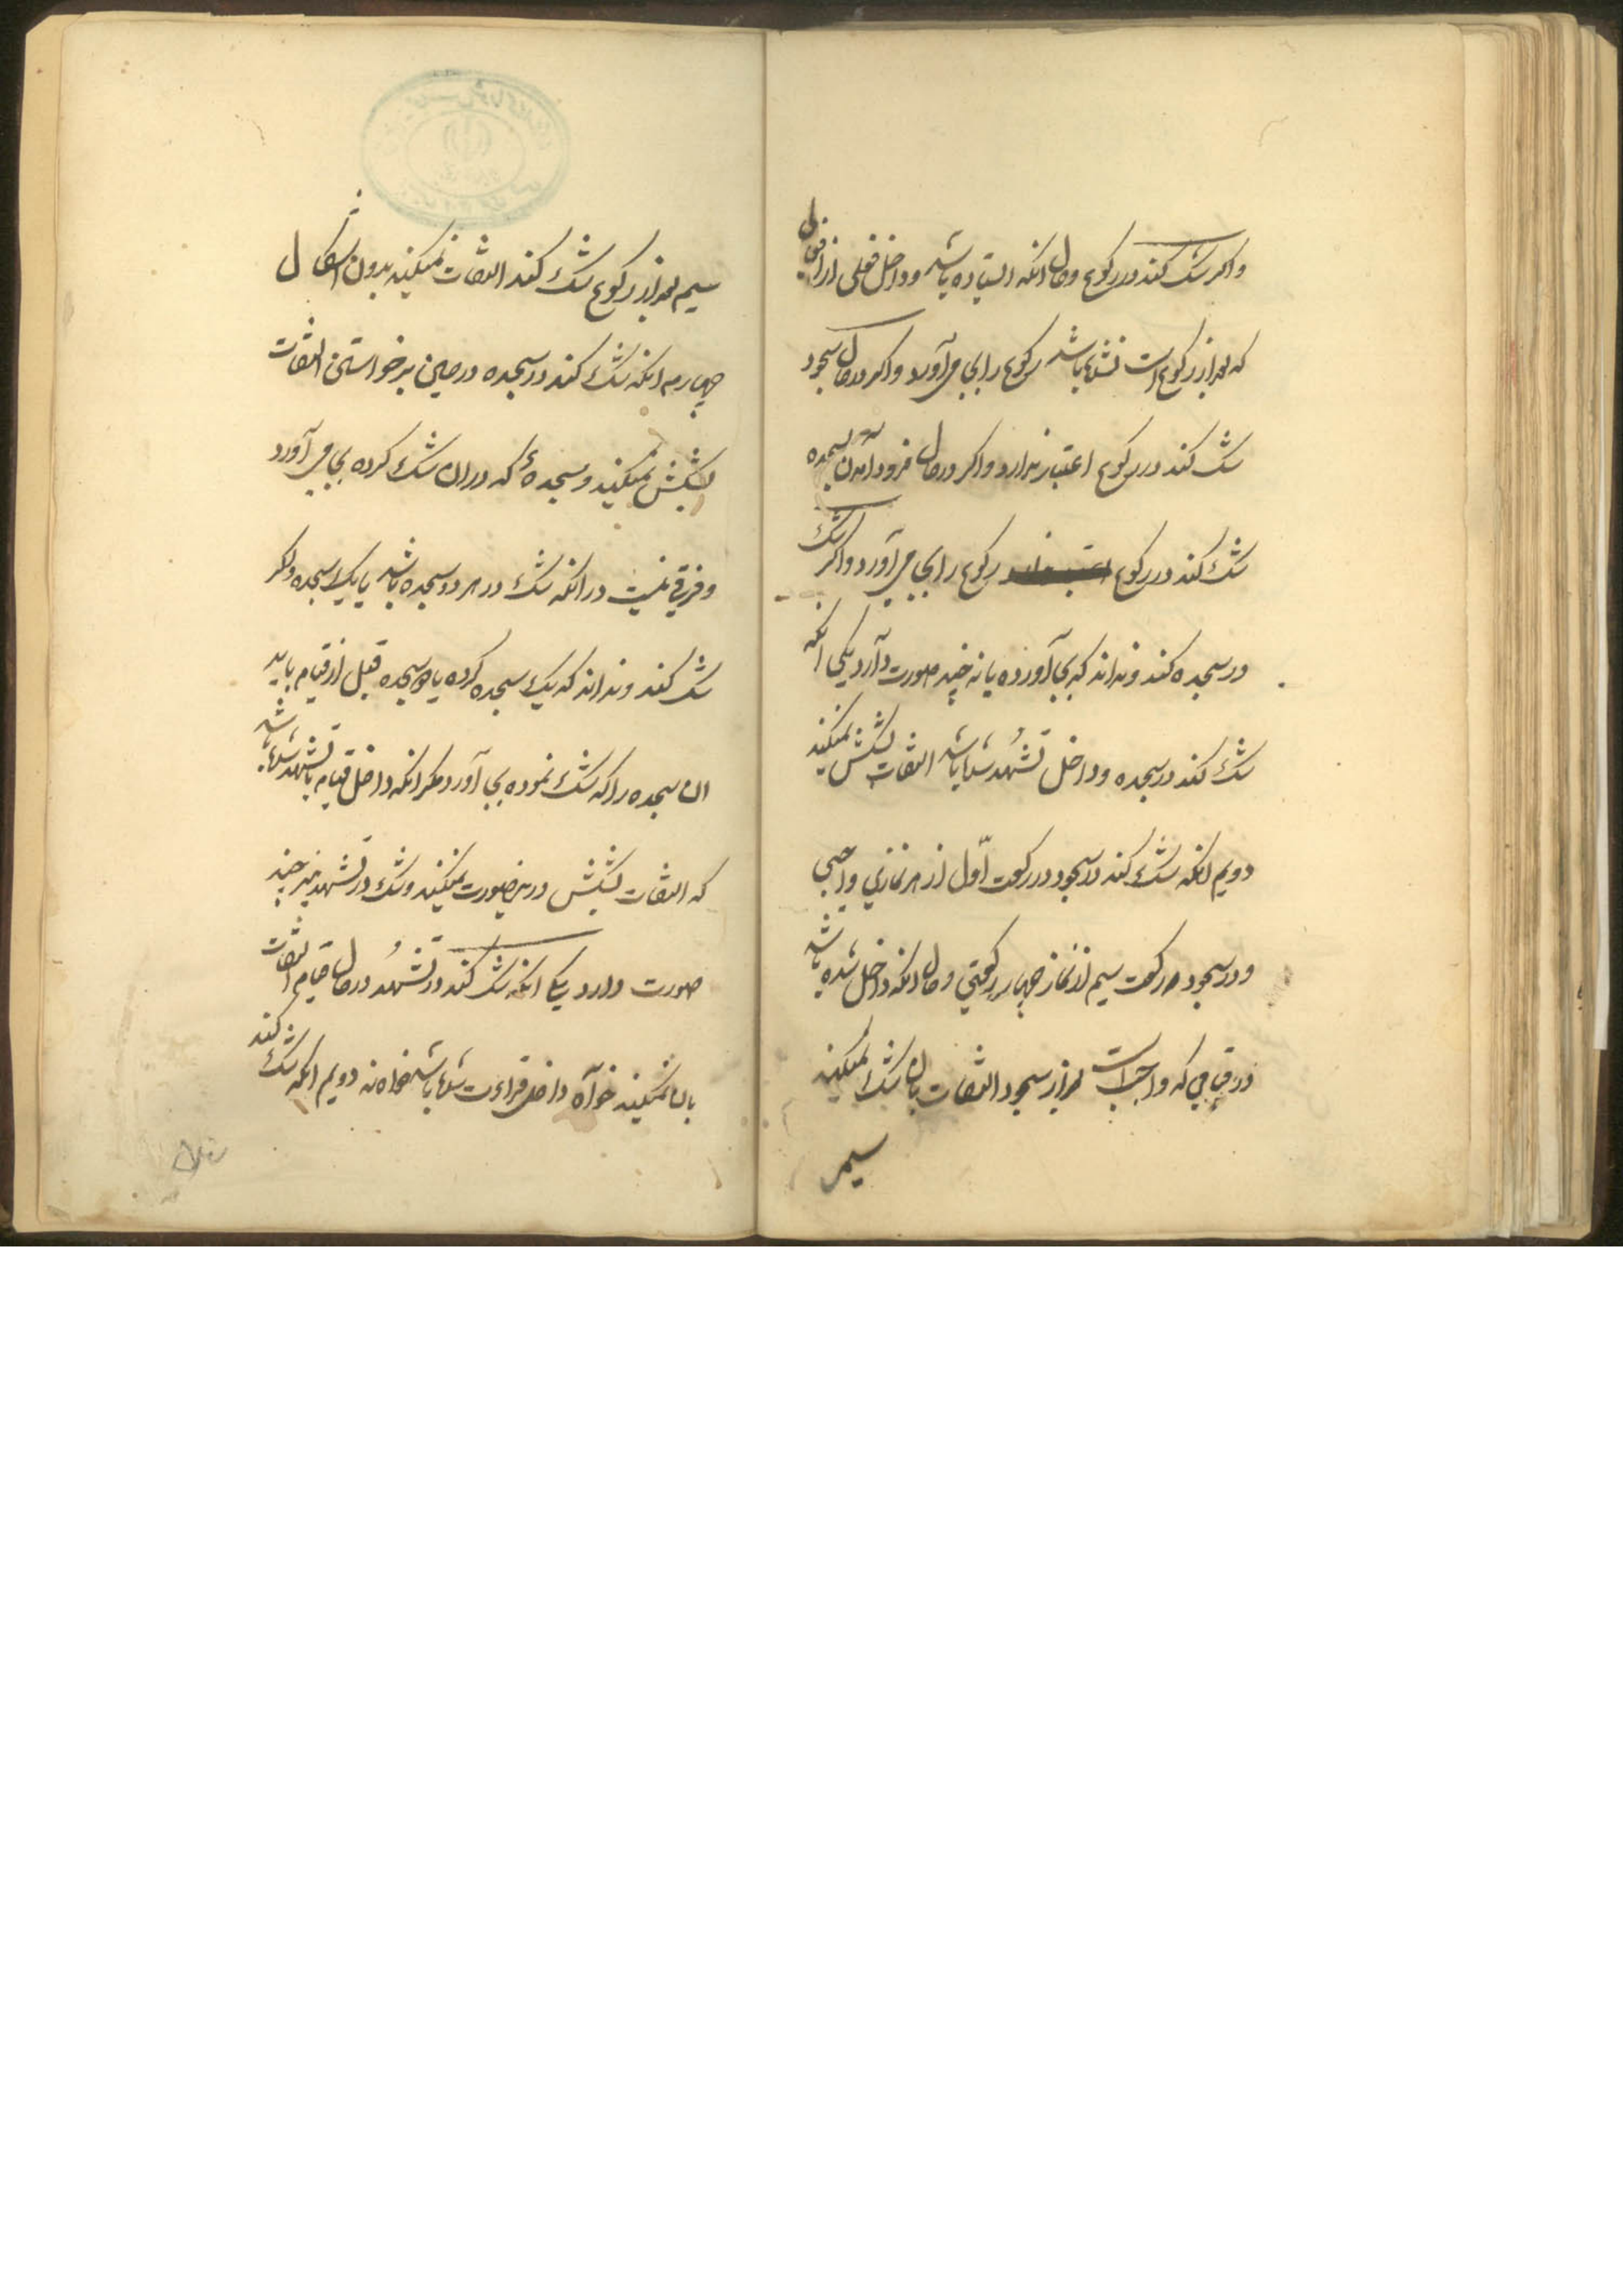 واکر شک کند در رکوع و حال انکه ایستاده باشد و داخل فعلی از افعال
که بعد از رکوع است نشده باشد رکوع را بجا می آورد واکر در حال سجود
شک کند در رکوع اعتبار ندارد واکر در حال فرود آمدن بسجده
شک کند در رکوع رکوع را بجا می آورد واکر شک
در سجده کند و نداند که بجا آورده یا نه چند صورت دارد یکی انکه
شک کند در سجده و داخل تشهد شده باشد التفات بشکش نمیکند
دویم انکه شک کند در سجود در رکعت اول از هر نمازی واجبی
و در سجود در رکعت سیم از نماز چهار رکعتی و حال انکه داخل شده باشد
در قیامی که واجبست بعد از سجود التفات بان شک نمیکند
سیم
سیم بعد از رکوع شک کند التفات نمیکند بدون اشکال
چهارم انکه شک کند در سجده در حین برخواستن التفات
بشکش نمیکند و سجدهٔ که در ان شک کرده بجا می آورد
و فرقی نیست در انکه شک در هر دو سجده باشد یا یک سجده و اکر
شک کند و نداند که یک سجده کرده یا دو سجده قبل از قیام باید
ان سجده را که شک نموده بجا آورد مکر انکه داخل قیام یا تشهد شده باشد
که التفات بشکش در این صورت نمیکند و شک در تشهد نیز چند
صورت دارد یکی انکه شک کند در تشهد در حال قیام التفات
بان نمیکند خواه داخل قراءت شده باشد خواه نه دویم انکه شک کند